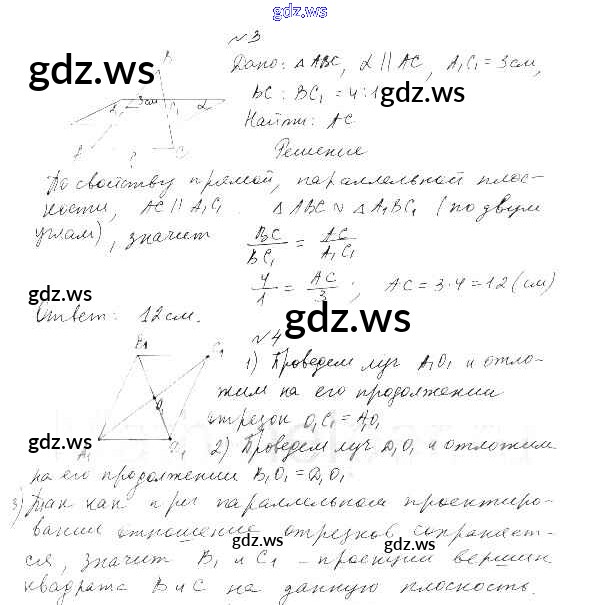 gdz.ws
№3
Дано: △ABC, α || AC, A₁C₁ = 3см,
BC : BC₁ = 4 : 1
Найти: AC
Решение
По свойству прямой, параллельной плос-
кости, AC || A₁C₁. △ABC ∾ △A₁BC₁ (по двум
углам), значит BC/BC₁ = AC/A₁C₁
4/1 = AC/3 ; AC = 3·4 = 12 (см)
Ответ: 12 см.
B
3см
A₁
C₁
α
A
?
C
gdz.ws
gdz.ws
gdz.ws
gdz.ws
№4
1) Проведем луч A₁O₁ и отло-
жим на его продолжении
отрезок O₁C₁ = A₁O₁
2) Проведем луч D₁O₁ и отложим
на его продолжении B₁O₁ = D₁O₁
3) Так как при параллельном проектиро-
вании отношение отрезков сохраняет-
ся, значит B₁ и C₁ – проекции вершин
квадрата B и C на данную плоскость.
B₁
C₁
O₁
A₁
D₁
gdz.ws
gdz.ws
gdz.ws